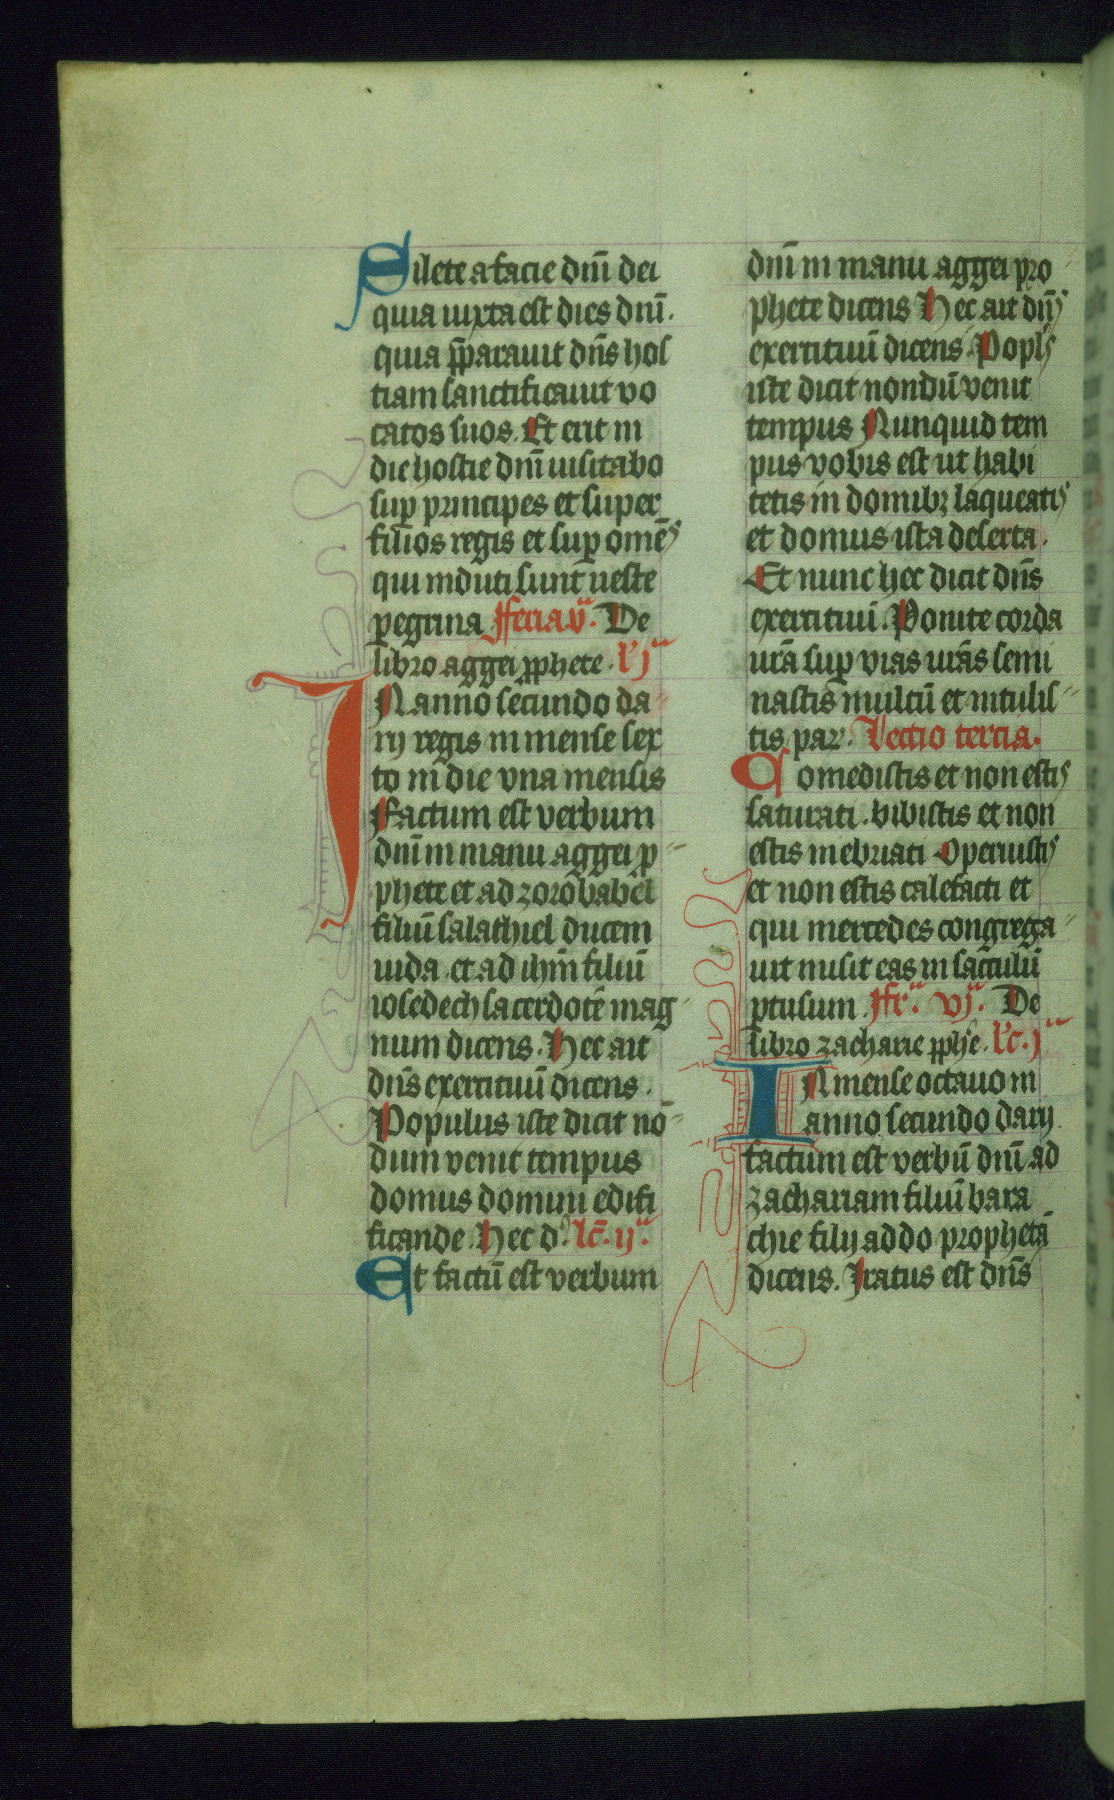 Silete a facie dn̄i dei
quia iuxta est dies dn̄i.
quia p̄parauit dn̄s hos
tiam sanctificauit vo
catos suos. Et erit in
die hostie dn̄i uisitabo
sup̱ principes et super
filios regis et sup̱ omēs
qui induti sunt ueste
p̱egrina feria v̄ᵃ. De
libro aggei p̱phete. l'jᵃ
IN anno secundo da
rij regis in mense sex
to in die vna mensis
Factum est verbum
dn̄i in manu aggei p̱
phete et ad zorobabel
filiū salathiel ducem
iuda. et ad ih̄m filiū
iosedech sacerdotē mag
num dicens. Hec ait
dn̄s exercituū dicens.
Populus iste dicit nō
dum venit tempus
domus domini edifi
ficande. Hec d'. lc̄. ijᵃ.
Et factū est verbum
dn̄i in manu aggei pro
phete dicens Hec ait dn̄s
exercituū dicens. Popl's
iste dicit nondū venit
tempus Nunquid tem
pus vobis est ut habi
tetis in domibꝫ laqueatis
et domus ista deserta.
Et nunc hec dicit dn̄s
exercituū. Ponite corda
ur̄a sup̱ vias ur̄as semi
nastis multū et intulis
tis par'. Lectio tercia.
Comedistis et non estis
saturati. bibistis et non
estis inebriati Operuistis
et non estis calefacti et
qui mercedes congrega
uit misit eas in sacculū
p̱tusum. fr̄ᵃ vjᵃ. De
libro zacharie p̱ph'e. lc̄. jᵃ
IN mense octauo in
anno secundo darij
factum est verbū dn̄i ad
zachariam filiū bara
chie filij addo prophetā
dicens. Iratus est dn̄s